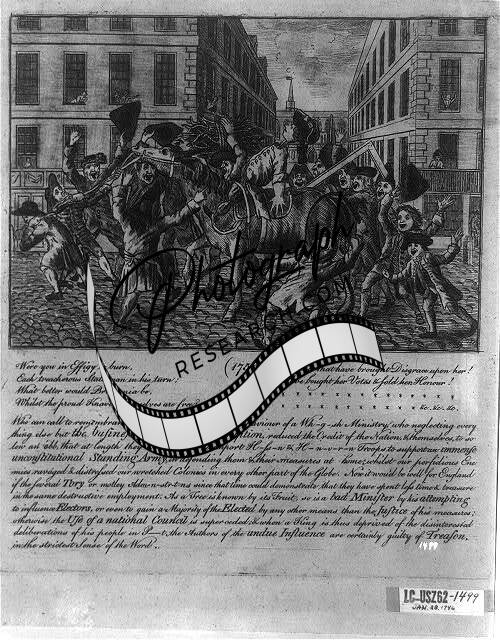 Photograph
RESEARCH.COM
Were you in Effigy burn,
Each treacherous Statesman in his turn!
What better would Br
Whilst the proud Knav selves are free
that have brought Disgrace upon her!
ve bought her Votes & sold her Honour!
&c. &c. &c.
Who can call to remembran aviour of a Wh-g-sh Ministry, who neglecting every
thing else but the Busine ption, reduced the Credit of the Nation, & themselves, to so
low an ebb, that at length they H-n-v-r-n Troops to support an immense
unconstitutional Standing Army, in defending them & their treasures at home; whilst our perfidious Ene-
mies ravaged & distressed our wretched Colonies in every other part of the Globe. And it would be well for England
if the several Tory or motley Adm-n-str-t-ns since that time could demonstrate, that they have spent less time & treasure
in the same destructive employment. As a Tree is known by its Fruit; so is a bad Minister by his attempting
to influence Electors, or even to gain a Majority of the Elected by any other means than the Justice of his measures;
otherwise the Use of a national Council is superceded: & when a King is thus deprived of the disinterested
deliberations of his people in P--t, the Authors of the undue Influence are certainly guilty of Treason,
in the strictest Sense of the Word.
1499
LC-USZ62-1499